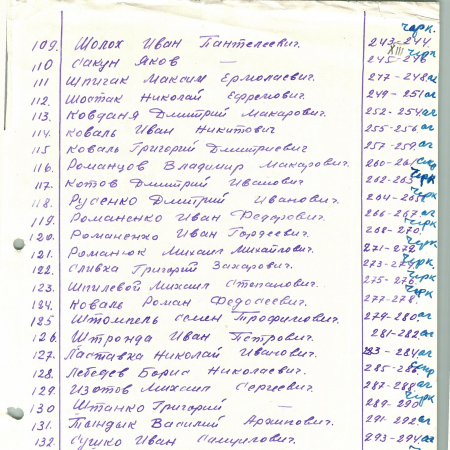 черк.
109. Шолох Иван Пантелеевич. 243-244.
110 Сакун Яков — 245-246 XIII черк
111 Шпичак Максим Ермолаевич. 247-248 аг
112. Шостак Николай Ефремович. 249-251 аг
113. Ковданя Дмитрий Макарович. 252-254 аг
114. Коваль Иван Никитович 255-256. аг
115 Коваль Григорий Дмитриевич 257-259. аг
116. Романцов Владимир Макарович. 260-261
117. Котов Дмитрий Иванович 262-263 черк
118. Русенко Дмитрий Иванович. 264-265
119. Романенко Иван Федорович. 266-267 аг
120. Романенко Иван Гордеевич. 268-270. черк
121. Романюк Михаил Михайлович. 271-272 черк
122. Сливка Григорий Захарович. 273-274 черк
123. Шпилевой Михаил Степанович. 275-276 черк
124. Коваль Роман Федосеевич. 277-278. черк
125 Штомпель Семен Трофимович. 279-280. аг
126. Штронда Иван Петрович. 281-282 аг
127. Ластавка Николай Иванович. 283-284 аг
128. Лебедев Борис Николаевич. 285-286.
129. Изотов Михаил Сергеевич. 287-288. аг
130 Штанко Григорий — 289-290. черк
131. Тындык Василий Архипович. 291-292 аг
132. Сушко Иван 293-294 аг